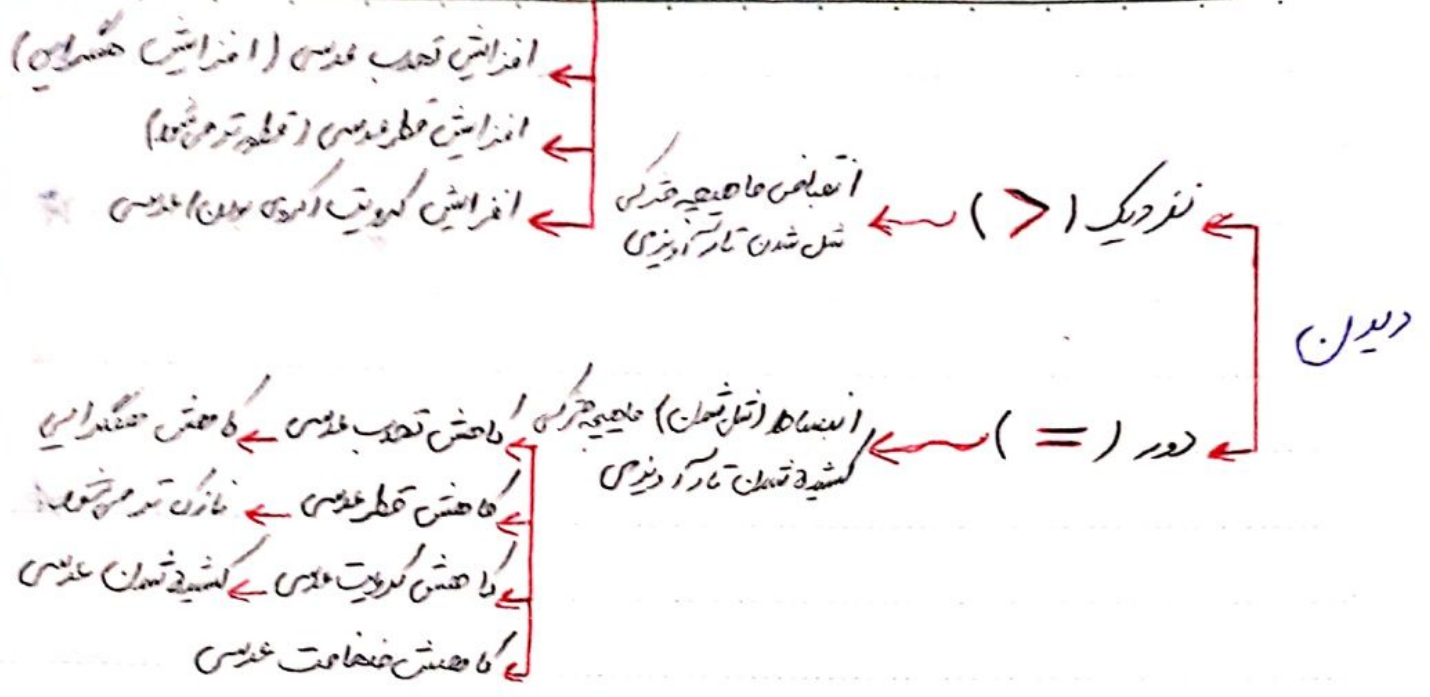 دیدن
نزدیک (<)
انقباض ماهیچه مژکی
شل شدن تار آویزی
افزایش تحدب عدسی (افزایش همگرایی)
افزایش قطر عدسی (قطورتر می‌شود)
افزایش کرویت (کروی بودن) عدسی
دور (=)
انبساط (شل شدن) ماهیچه مژکی
کشیده شدن تار آویزی
کاهش تحدب عدسی ← کاهش همگرایی
کاهش قطر عدسی ← نازک تر می‌شود
کاهش کرویت عدسی ← کشیده شدن عدسی
کاهش ضخامت عدسی